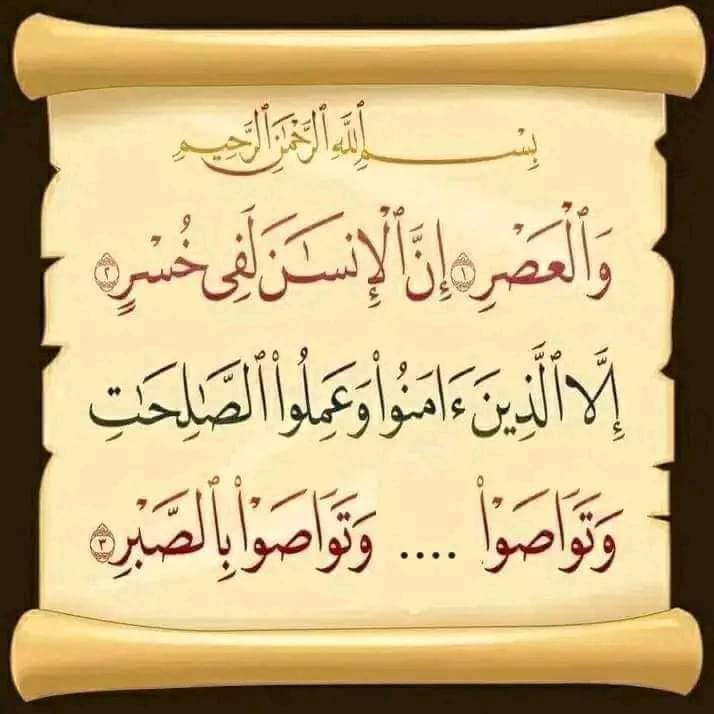 بِسْمِ ٱللَّهِ ٱلرَّحْمَٰنِ ٱلرَّحِيمِ
وَٱلْعَصْرِ ۝١ إِنَّ ٱلْإِنسَٰنَ لَفِى خُسْرٍ ۝٢
إِلَّا ٱلَّذِينَ ءَامَنُوا۟ وَعَمِلُوا۟ ٱلصَّٰلِحَٰتِ
وَتَوَاصَوْا۟ .... وَتَوَاصَوْا۟ بِٱلصَّبْرِ ۝٣